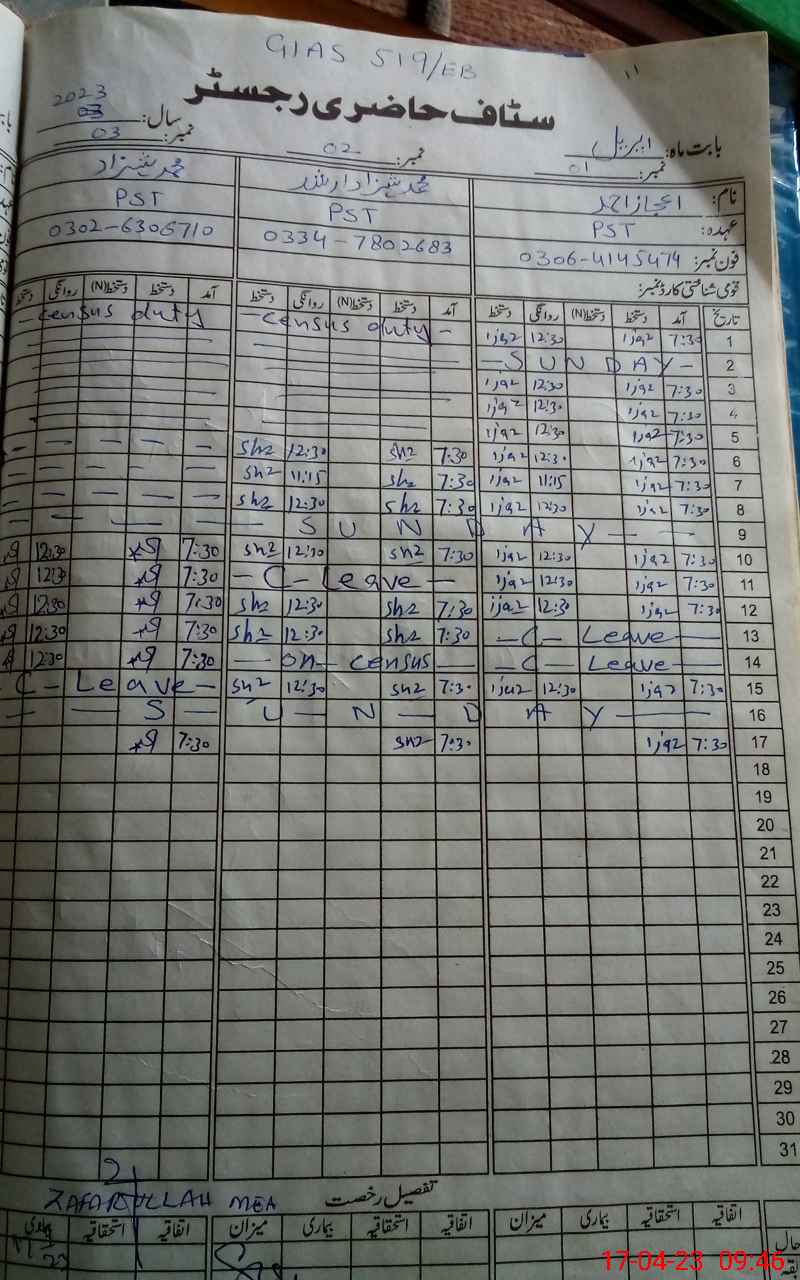 GIAS 519/EB
11
سٹاف حاضری رجسٹر
بابت ماہ: اپریل سال: 2023
نمبر: 01 نمبر: 02 نمبر: 03
نام: اعجاز احمد محمد شہزاد ارشد محمد شہزاد
عہدہ: PST PST PST
فون نمبر: 0306-4145474 0334-7802683 0302-6306710
قومی شناختی کارڈ نمبر:
تاریخ آمد دستخط دستخط(N) روانگی دستخط آمد دستخط دستخط(N) روانگی دستخط آمد دستخط دستخط(N) روانگی دستخط
1 7:30 12:30 - census duty - - census duty
2 - SUNDAY -
3 7:30 12:30
4 7:30 12:30
5 7:30 12:30
6 7:30 12:30 7:30 sh2 12:30 sh2
7 7:30 11:15 7:30 sh2 11:15 sh2
8 7:30 12:30 7:30 sh2 12:30 sh2
9 SUNDAY
10 7:30 12:30 7:30 sh2 12:30 sh2 7:30 12:30
11 7:30 12:30 - C - Leave - 7:30 12:30
12 7:30 12:30 7:30 sh2 12:30 sh2 7:30 12:30
13 - C - Leave - 7:30 sh2 12:30 sh2 7:30 12:30
14 - C - Leave - - on - census - 7:30 12:30
15 7:30 12:30 7:30 sh2 12:30 sh2 C - Leave -
16 SUNDAY
17 7:30 7:30 sh2 7:30
18
19
20
21
22
23
24
25
26
27
28
29
30
31
تفصیل رخصت
ZAFARULLAH MEA
اتفاقیہ استحقاقیہ بیماری میزان اتفاقیہ استحقاقیہ بیماری میزان اتفاقیہ استحقاقیہ بیماری
حال
17-04-23 09:46